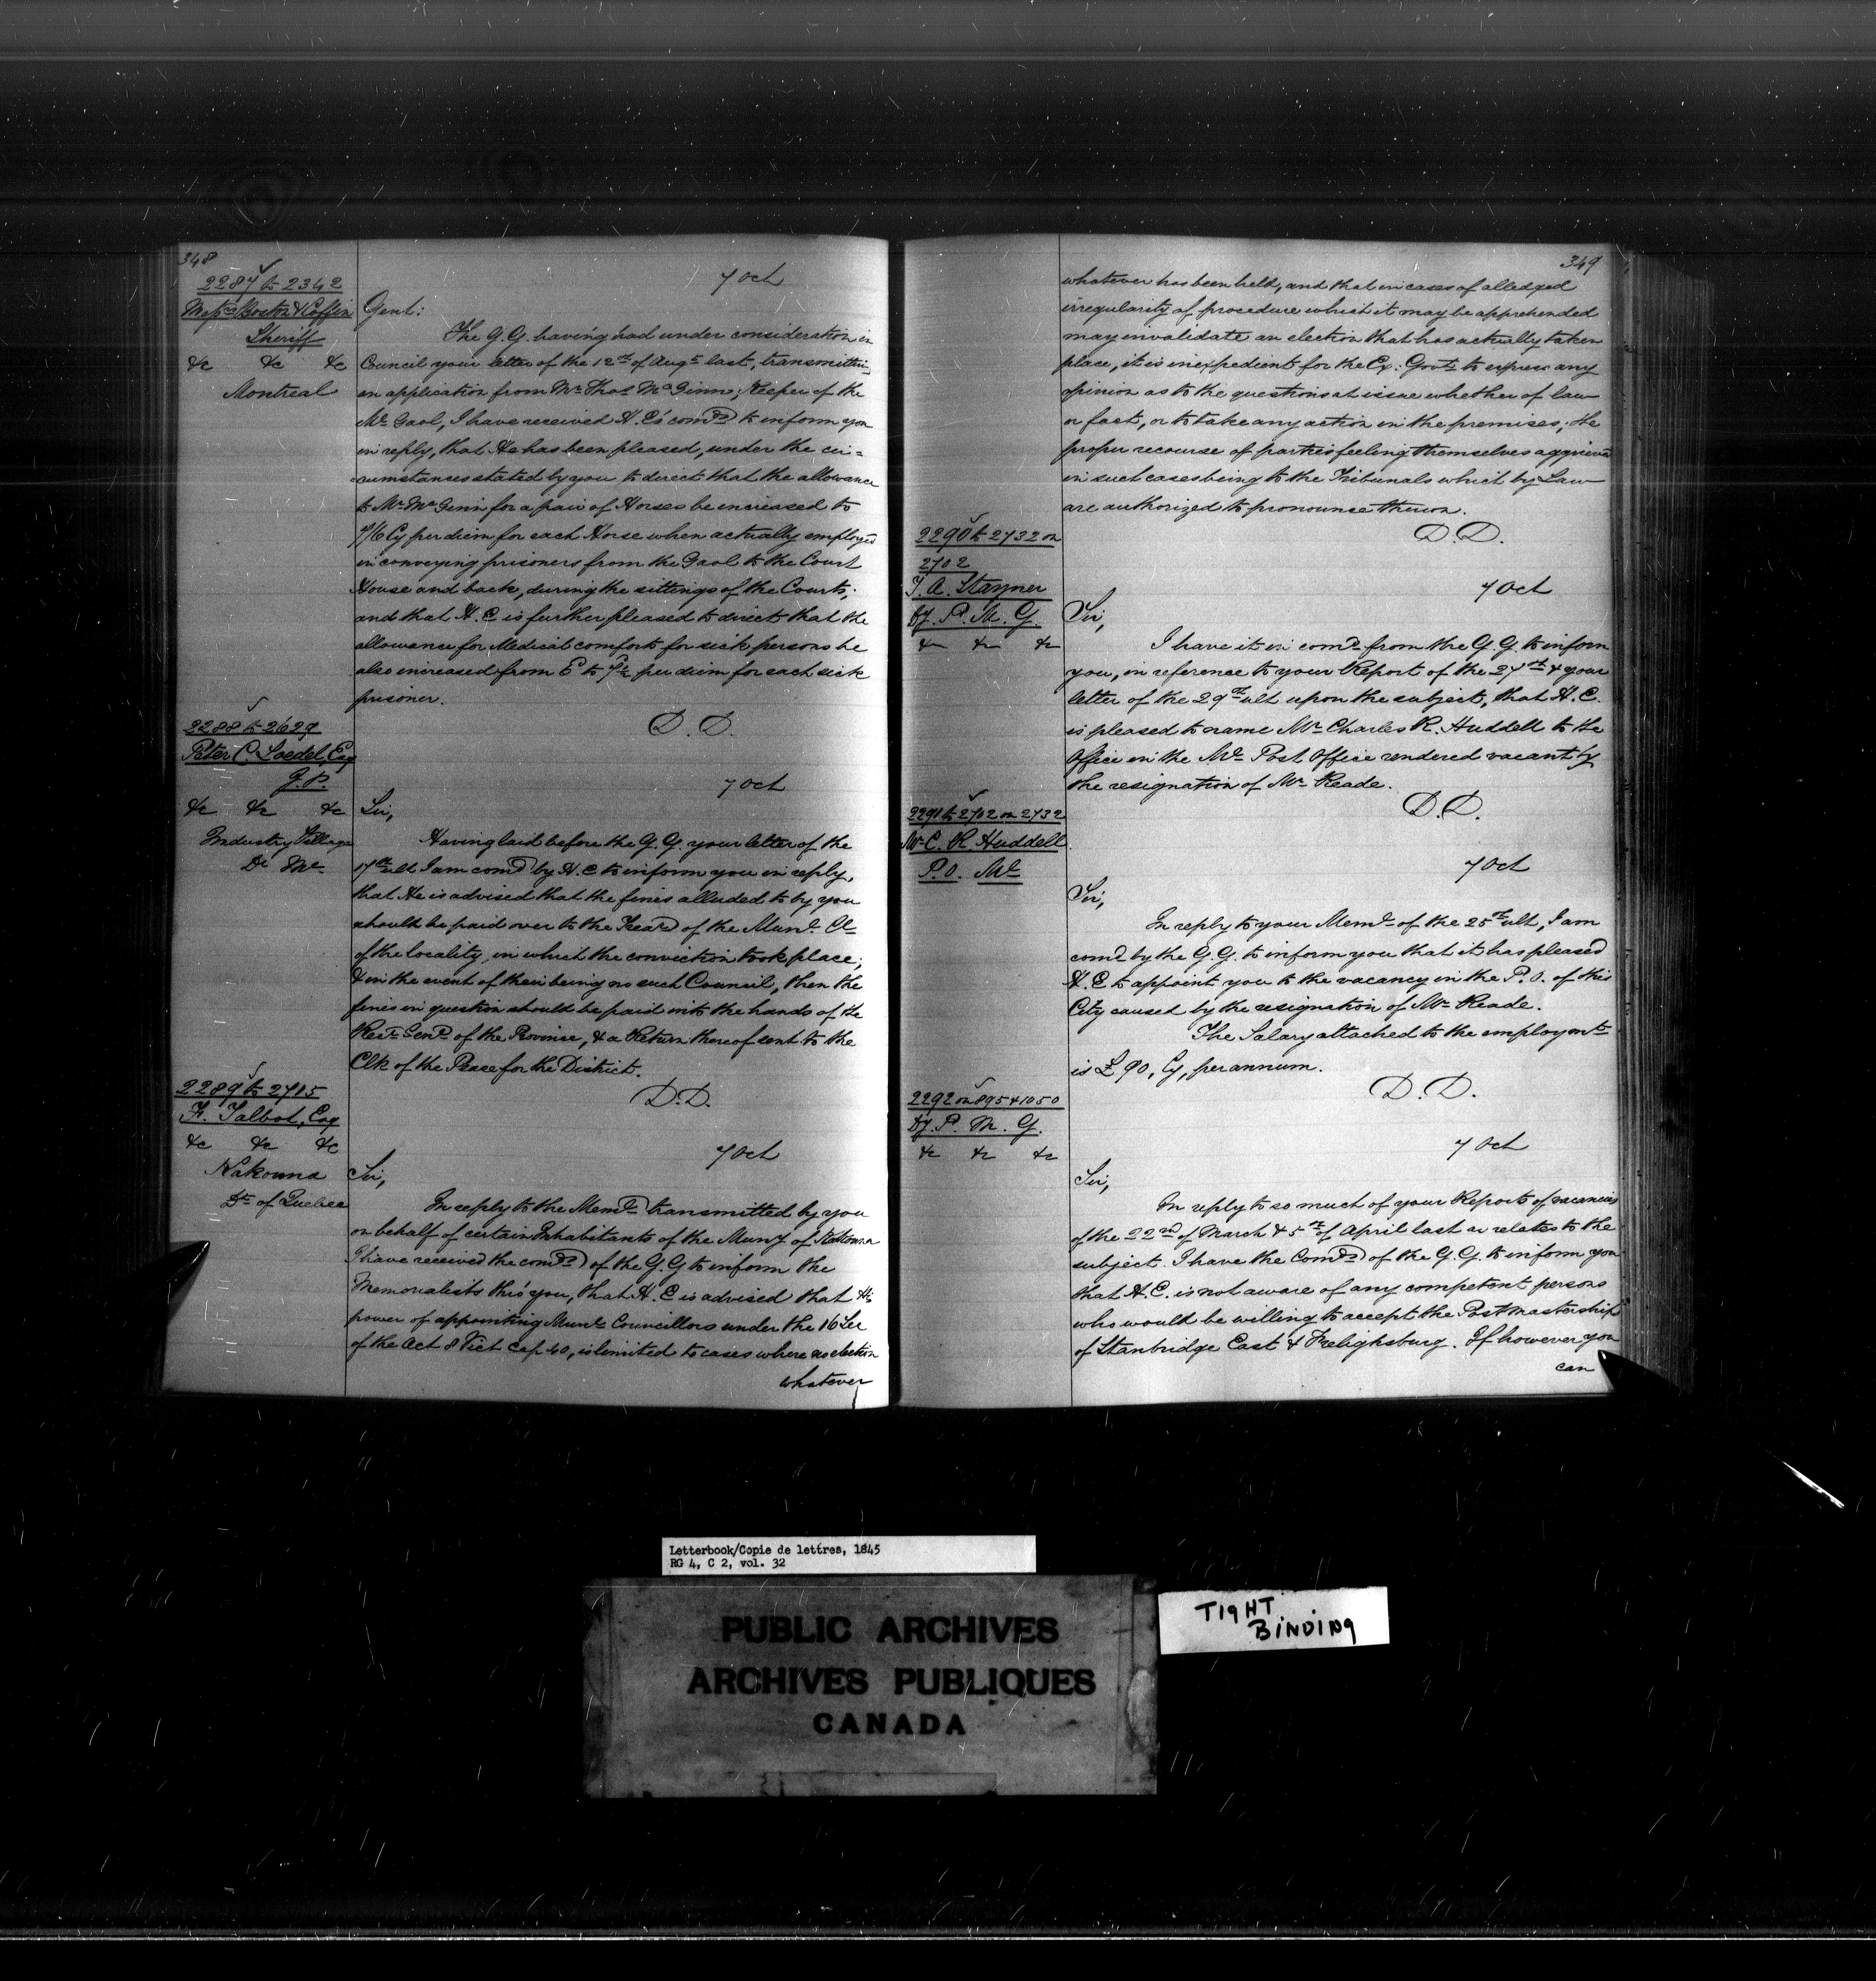 348
2287 to 2342
Messrs Boston & Coffin
Sheriff
&c &c &c
Montreal
7 Oct
Gent:
The G.G. having had under consideration in
Council your letter of the 12th of Augt last, transmitting
an application from Mr Thos McGinn, Keeper of the
Ml Gaol, I have received H.E's comds to inform you
in reply, that He has been pleased, under the cir=
cumstances stated by you to direct that the allowance
to Mr McGinn for a pair of Horses be increased to
7/6 Cy per diem for each Horse when actually employed
in conveying prisoners from the Gaol to the Court
House and back, during the sittings of the Courts;
and that H.E. is further pleased to direct that the
allowance for Medical comforts for sick persons be
also increased from to per diem for each sick
prisoner.
D.D.
2288 to 2629
Peter C. Loedel, Esq
J.P.
&c &c &c
Industry Village
Dt Ml
7 Oct
Sir,
Having laid before the G.G. your letter of the
17th ult I am comd by H.E to inform you in reply,
that He is advised that the fines alluded to by you
should be paid over to the Treasr of the Munl Cl
of the locality, in which the conviction took place;
& in the event of their being no such Council, then the
fines in question should be paid into the hands of the
Recr Genl of the Province, & a Return thereof sent to the
Clk of the Peace for the District.
D.D.
2289 to 2715
F. Talbot, Esq
&c &c &c
Kakouna
Dt of Quebec
7 Oct
Sir,
In reply to the Meml transmitted by you
on behalf of certain Inhabitants of the Muny of Kakouna
I have received the comds of the G.G to inform the
Memorialists thro' you, that H.E is advised that His
power of appointing Munl Councillors under the 16 Sec
of the Act 8 Vict Cap 40, is limited to cases where no election
whatever
349
whatever has been held, and that in cases of alledged
irregularity of procedure which it may be apprehended
may invalidate an election that has actually taken
place, it is inexpedient for the Ex: Govt to express any
opinion as to the questions at issue whether of law
or fact, or to take any action in the premises; the
proper recourse of parties feeling themselves aggrieved
in such cases being to the Tribunals which by Law
are authorized to pronounce thereon.
D.D.
2290 to 2732 on
2702
T. A. Stayner
Dy. P. M. G.
&c &c &c
7 Oct
Sir,
I have it in comd from the G.G. to inform
you, in reference to your Report of the 27th & your
letter of the 29th ult upon the subject, that H.E.
is pleased to name Mr Charles R. Huddell to the
Office in the Ml Post Office rendered vacant by
the resignation of Mr Reade.
D.D.
2291 to 2702 on 2732
Mr C. R. Huddell
P.O. Ml
7 Oct
Sir,
In reply to your Meml of the 25th ult, I am
comd by the G.G. to inform you that it has pleased
H.E to appoint you to the vacancy in the P.O. of this
City caused by the resignation of Mr Reade.
The Salary attached to the employmt
is £90, Cy, per annum.
D.D.
2292 on 895 & 1050
Dy. P. M. G.
&c &c &c
7 Oct
Sir,
In reply to so much of your Reports of vacancies
of the 22nd of March & 5th of April last as relates to the
subject. I have the Comds of the G.G. to inform you
that H.E. is not aware of any competent persons
who would be willing to accept the Postmasterships
of Stanbridge East & Frelighsburg. If however you
can
Letterbook/Copie de lettres, 1845
RG 4, C 2, vol. 32
PUBLIC ARCHIVES
ARCHIVES PUBLIQUES
CANADA
TIGHT
BINDING